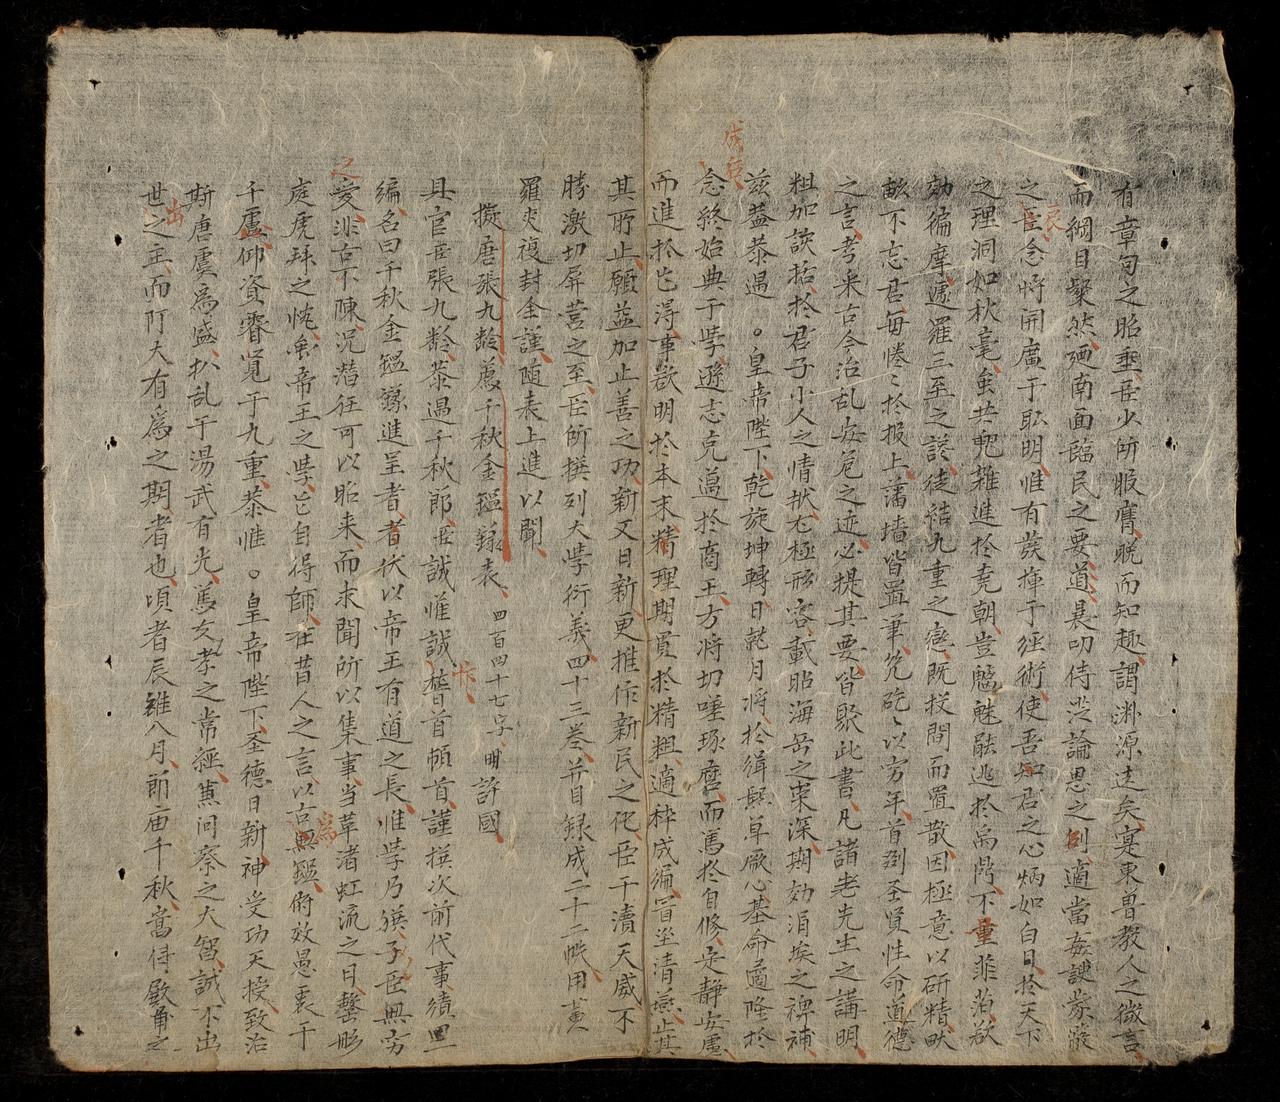 有章句之昭垂臣少所服膺晚而知趣謂淵源逺矣寔東魯教人之微言
而綱目粲然廼南面臨民之要道曩叨侍渋論思之列適當姦諛蒙蔽
之辰念將開廣于聡明惟有發揮于經術使吾知君之心炳如白日於天下
之理洞如秋毫虽共兜雜進於尭朝豈魑魅敢逃於禹鼎不量菲薄欲
効徧摩遽罹三至之讒徒結九重之戀既投閒而置散因極意以研精畎
畝不忘君每惓〻於报上藩墙皆置筆兀矻〻以穷年首剟圣賢性命道德
之言考采古今治乱安危之迹必提其要皆聚此書凢諸老先生之講明
粗加該括於君子小人之情狀尤極形容載路海岳之崇深期効涓埃之裨補
兹葢恭遇○皇帝陛下乾旋坤轉日就月將於緝熙单厥心基命益隆於
成臣
念終始典于學遜志克邁於商王方將切磋琢磨而篤於自修定静安慮
而進於所淂事欲明於本末精理期貫於精粗適粹成編冒塵清燕止其
其所止願益加止善之功新又日新更推作新民之化臣干瀆天威不
勝激切屏营之至臣所撰列大學衍義四十三巻并目録成二十二帙用黄
羅夾複封全謹随表上進以聞
擬唐張九齡薦千秋金鑑錄表 四百四十七字 明許國
具官臣張九齡恭遇千秋節臣誠惟誠忭稽首頓首謹撰次前代事績
編名曰千秋金鑑錄進呈者者伏以帝王有道之長惟學乃獲子臣無穷
之愛非古不陳况潜徃可以昭来而求聞所以集事当華渚虹流之日罄彤
庭虎拜之忱窃帝王之學必自得師在昔人之言以古為鑑俯效愚衷干
千慮仰資睿覧于九重恭惟○皇帝陛下圣德日新神受功天授致治
斯唐虞為盛撥乱于湯武有光篤友孝之常經蕙问察之大智誠不出
世之主而阿大有為之期者也頃者辰雖八月節届千秋當侍殿甬之